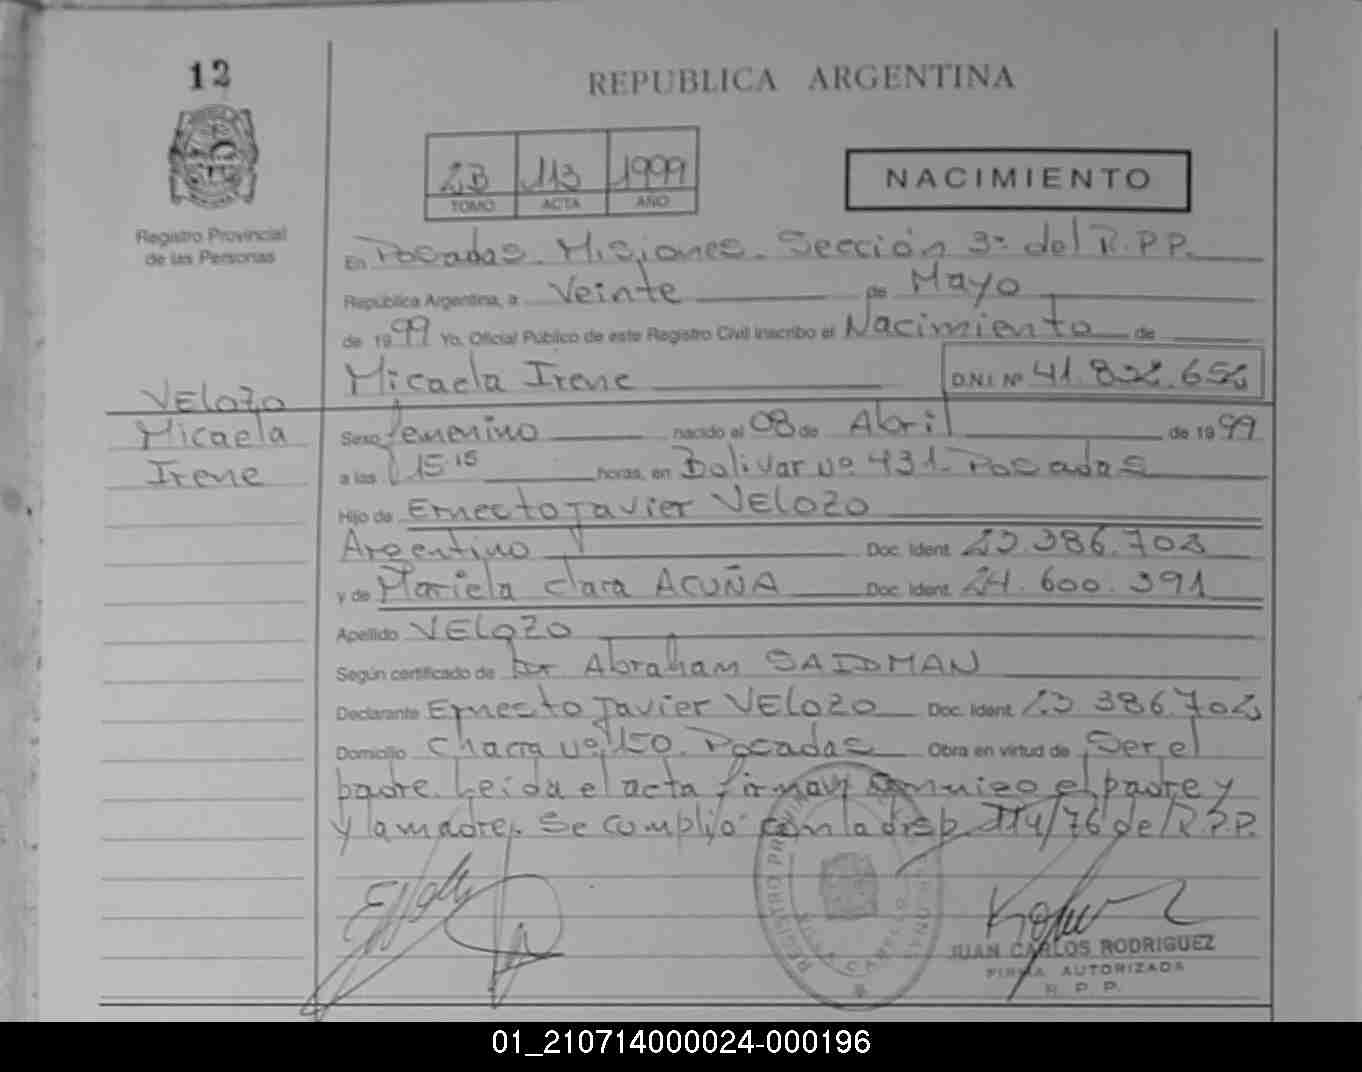 12
REPUBLICA ARGENTINA
2B 113 1999
TOMO ACTA AÑO
NACIMIENTO
Registro Provincial
de las Personas
En Posadas. Misiones. Sección 3ª del R.P.P.
República Argentina, a Veinte de Mayo
de 1999 Yo, Oficial Público de este Registro Civil inscribo el Nacimiento de
Micaela Irene D.N.I. Nº
VELOZO
Micaela
Irene
Sexo femenino nacido el 08 de Abril de 1999
a las 15 15 horas, en Bolivar nº 431. Posadas
Hijo de Ernesto Javier VELOZO
Argentino Doc. Ident.
y de Mariela Clara ACUÑA Doc. Ident. 24.600.391
Apellido VELOZO
Según certificado de Abraham SAIDMAN
Declarante Ernesto Javier VELOZO Doc. Ident.
Domicilio Chacra nº 150. Posadas Obra en virtud de Ser el
padre. Leida el acta firman conmigo el padre y
y la madre. Se cumplió con la disp. 114/76 del R.P.P.
JUAN CARLOS RODRIGUEZ
FIRMA AUTORIZADA
R. P. P.
01_210714000024-000196